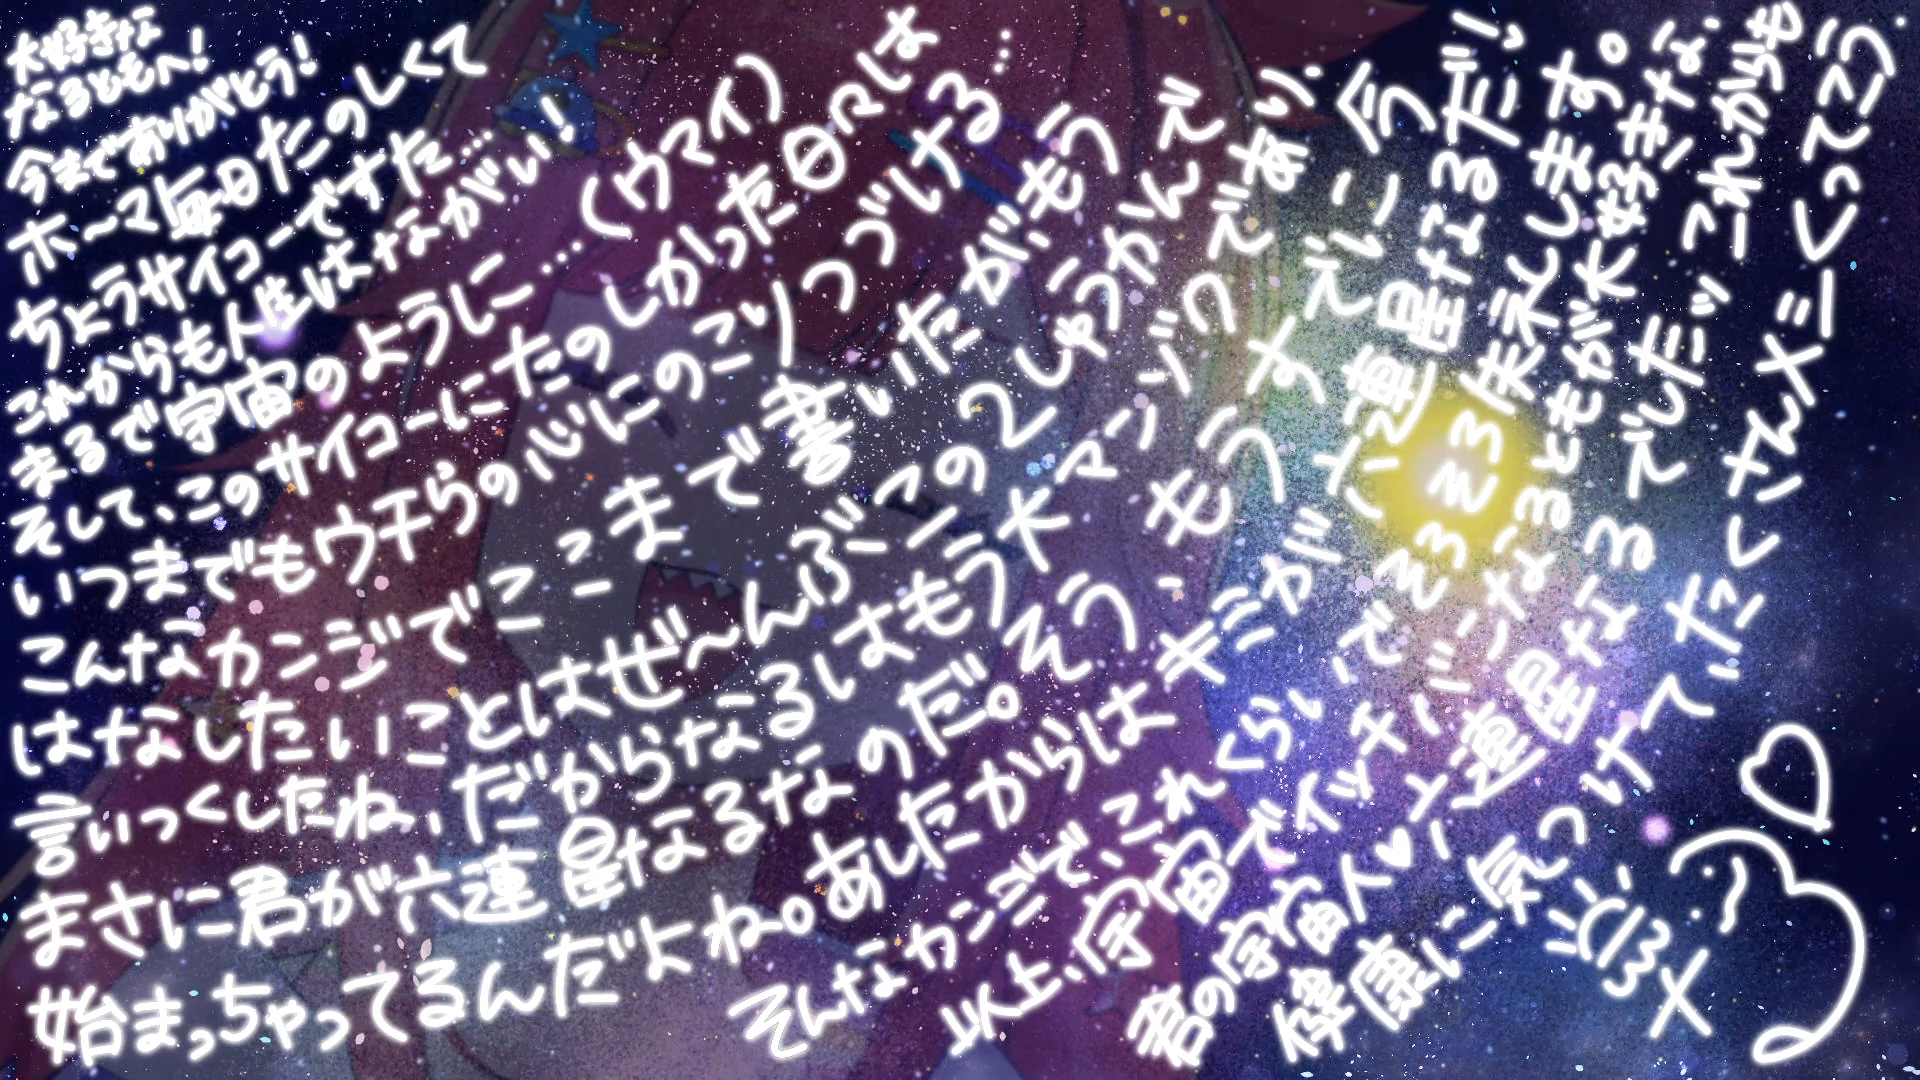 大好きな
なるともへ!
今までありがとう!
ホーマ毎日たのしくて
ちょうサイコーですた…
これからも人生はながい!
まるで宇宙のように…(ウマイ)
そして、このサイコーにたのしかった日々は
いつまでもウチらの心にのこりつづける…
こんなカンジでここまで書いたがもう
はなしたいことはぜ〜んぶこの2しゅうかんで
言いつくしたね、だからなるしはもう大マンゾクであり、
まさに君が六連星なるなのだ。そう、もうすでに今
始まっちゃってるんだよね。あしたからはキミが六連星なるだし
そんなカンジで、これくらいでそろそろ末えします。
以上、宇宙でイッチバンなるともが大好きな、
君の宇宙人♥六連星なるでしたッ これからも
健康に気つけてたくさんメシくってこう.